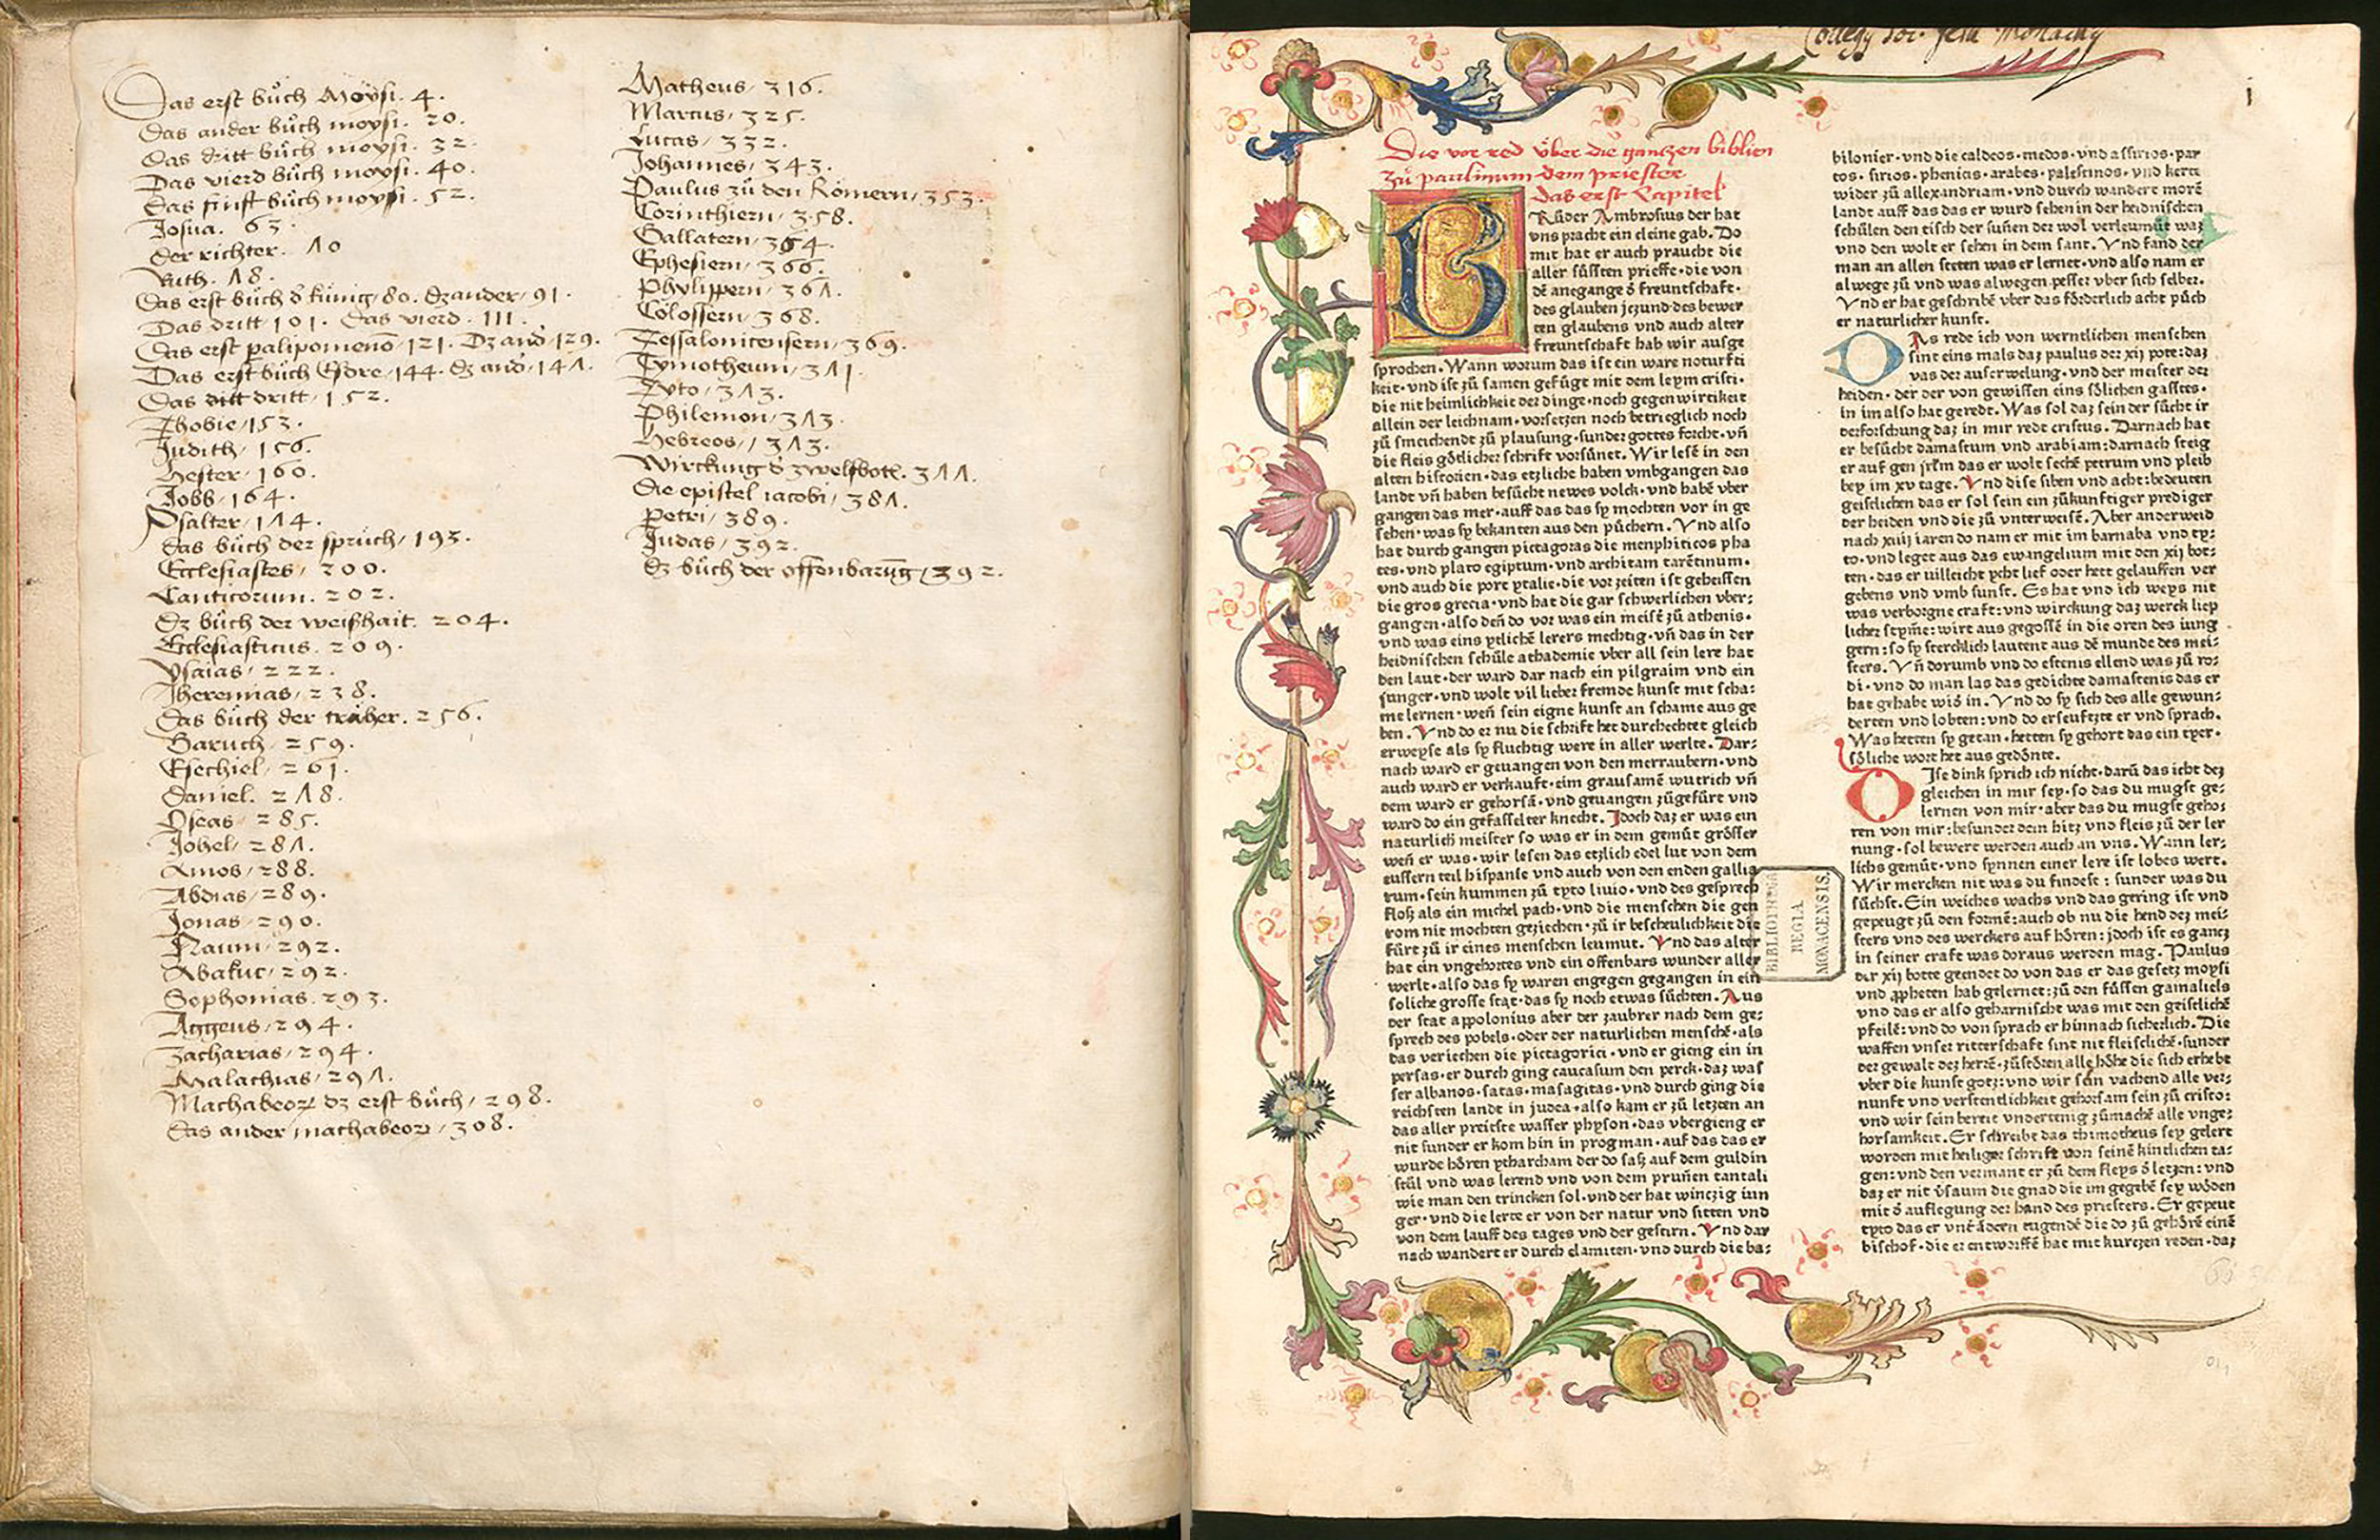 Das erst bůch Moÿsi. 4.
Das ander bůch moysi. 20.
Das dritt bůch moysi. 32.
Das vierd bůch moysi. 40.
Das finfft bůch moysi. 52.
Josua. 63.
der richter. 70
Ruth. 78.
Das erst bůch d̕ künig, 80. dz ander, 91.
Das dritt 101. Das vierd. 111.
Das erst palipomenō, 121. Dz and̕, 129.
Das erst bůch Esdre, 144. dz and̕, 147.
Das dritt, 152.
Thobie, 153.
Judith, 156.
Hester, 160.
Jobb, 164.
Psalter, 174.
Das bůch der sprüch, 193.
Ecclesiastes, 200.
Canticorum. 202.
Dz bůch der weißhait. 204.
Ecclesiasticus. 209.
Ysaias, 222.
Jheremias, 238.
Das bůch der träher. 256.
Baruch, 259.
Esechiel, 261.
Daniel. 278.
Oseas, 285.
Johel, 287.
Amos, 288.
Abdias, 289.
Jonas, 290.
Naum, 292.
Abakuc, 292.
Sophonias. 293.
Aggeus, 294.
Zacharias, 294.
Malachias, 297.
Machabeoꝝ dz erst bůch, 298.
das ander machabeoꝝ, 308.
Matheus, 316.
Marcus, 325.
Lucas, 332.
Johannes, 343.
Paulus zů den Römern, 353.
Corinthiern, 358.
Gallatern, 364.
Ephesiern, 366.
Phylippern, 367.
Colossern, 368.
Tessalonicensern, 369.
Tymotheum, 371.
Tyto, 373.
Philemon, 373.
Hebreos, 373.
Wirckung d̕ zwelfbotē. 377.
Die epistel iacobi, 387.
Petri, 389.
Judas, 392.
Dz bůch der offenbarūg, 392.
Collegij Soc. Jesu Monachij
i
Die vor red über die gantzen biblien
zů paulinum dem priester
das erst Capitel
BRůder Ambrosius der hat
vns pracht ein cleine gab. Do
mit hat er auch praucht die
aller sůssten prieffe·die von
dē anegange d̕ freuntschaft·
des glauben jczund·des bewer
ten glaubens vnd auch alter
freuntschaft hab wir aufge
sprochen. Wann worum das ist ein ware noturfti
keit·vnd ist zů samen gefügt mit dem leym cristi·
die nit heimlichkeit der dinge·noch gegenwirtikeit
allein der leichnam·vorsetzen noch betrieglich noch
zů smeichende zů plausung·sunder gottes forcht·vñ
die fleis gőtlicher schrift vorsůnet. Wir lesē in den
alten historien·das etzliche haben vmbgangen das
landt vñ haben besůcht newes volck·vnd habē vber
gangen das mer·auff das das sy mochten vor in ge
sehen·was sy bekanten aus den půchern. Vnd also
hat durch gangen pictagoras die menphiticos pha
tes·vnd plato egiptum·vnd architam tarētinum·
vnd auch die port ytalie·die vor zeiten ist geheissen
die gros grecia·vnd hat die gar schwerlichen vber:
gangen·also deñ do vor was ein meist̄ zů athenis·
vnd was eins ytlichē lerers mechtig·vñ das in der
heidnischen schůle achademie vber all sein lere hat
den laut·der ward dar nach ein pilgraim vnd ein
junger·vnd wolt vil lieber fremde kunst mit scha:
me lernen·weñ sein eigne kunst an schame aus ge
ben. Vnd do er nu die schrift het durchechtet gleich
erweyse als sy fluchtig were in aller werlte. Dar:
nach ward er geuangen von den merraubern·vnd
auch ward er verkauft·eim grausamē wutrich vñ
dem ward er gehorsā·vnd geuangen zůgefůrt vnd
ward do ein gefasselter knecht. Jdoch daz er was ein
naturlich meister so was er in dem gemůt grősser
weñ er was·wir lesen das etzlich edel lut von dem
eussern teil hispanie vnd auch von den enden gallia
rum·sein kummen zů tyto liuio·vnd des gesprech
floß als ein michel pach·vnd die menschen die gen
rom nit mochten geziechen·zů ir bescheulichkeit die
fůrt zů ir eines menschen leumut. Vnd das alter
hat ein vngehortes vnd ein offenbars wunder aller
werlt·also das sy waren engegen gegangen in ein
soliche grosse stat·das sy noch etwas sůchten. Aus
der stat appolonius aber der zaubrer nach dem ge:
sprech des pobels·oder der naturlichen menschē·als
das veriechen die pictagorici·vnd er gieng ein in
persas·er durch ging caucasum den perck·daz waſ
ser albanos·satas·masagitas·vnd durch ging die
reichsten landt in judea·also kam er zů letzten an
das aller preitste wasser physon·das vbergieng er
nit sunder er kom hin in progman·auf das das er
wurde hőren ycharcham der do saß auf dem guldin
stůl vnd was lerend vnd von dem pruñen tantali
wie man den trincken sol·vnd der hat winczig iun
ger·vnd die lerte er von der natur vnd sitten vnd
von dem lauff des tages vnd der gestirn. Vnd dar
nach wandert er durch elamiten·vnd durch die ba:
bilonier·vnd die caldeos·medos·vnd assirios·par
tos·sirios·phenicas·arabes·palestinos·vnd kerte
wider zů allexandriam·vnd durch wandert morē
landt auff das das er wurd sehen in der heidnischen
schůlen den tisch der suñen der wol verleumūt waz
vnd den wolt er sehen in dem sant. Vnd fand der
man an allen steten was er lernet·vnd also nam er
alwege zů vnd was alwegen pesser vber sich selber.
Vnd er hat geschribē vber das főrderlich acht půch
er naturlicher kunst.
DAs rede ich von werntlichen menschen
sint eins mals daz paulus der xij pote:daz
vas der auserwelung·vnd der meister der
heiden·der der von gewissen eins sőlichen gasstes·
in im also hat geredt. Was sol daz sein der sůcht ir
derforschung daz in mir redt cristus. Darnach hat
er besůcht damascum vnd arabiam:darnach steig
er auf gen jrłm das er wolt sechē petrum vnd pleib
bey im xv tage. Vnd dise siben vnd acht:bedeuten
geistlichen das er sol sein ein zůkunftiger prediger
der heiden vnd die zů vnterweisē. Aber anderweid
nach xiiij iaren do nam er mit im barnaba vnd ty:
to·vnd leget aus das ewangelium mit den xij bot:
ten·das er uilleicht ycht lief oder hett gelauffen ver
gebens vnd vmb sunst. Es hat vnd ich weys nit
was verborgne craft:vnd wirckung daz werck liep
licher stym̄e:wirt aus gegossē in die oren des iung
gern:so sy sterchlich lautent aus dē munde des mei:
sters. Vñ dorumb vnd do eschenis ellend was zů ro:
di·vnd do man las das gedichte damastenis das er
hat gehabt wid̕ in. Vnd do sy sich des alle gewun:
derten vnd lobten:vnd do erseufzte er vnd sprach.
Was hetten sy getan·hetten sy gehort das ein tyer·
sőliche wort het aus gedőnte.
DIse dink sprich ich nicht·darū das icht dez
gleichen in mir sey·so das du mugst ge:
lernen von mir·aber das du mugst geho:
ren von mir:besunder dein hitz vnd fleis zů der ler
nung·sol bewert werden auch an vns. Wann ler:
lichs gemůt·vnd synnen einer lere ist lobes wert.
Wir mercken nit was du findest: sunder was du
sůchst. Ein weiches wachs vnd das gering ist vnd
gepeugt zů den formē:auch ob nu die hend dez mei:
sters vnd des werckers auf hőren:jdoch ist es gancz
in seiner craft was doraus werden mag. Paulus
der xij botte geendet do von das er das gesetz moysi
vnd ꝓpheten hab gelernet:zů den fůssen gamaliels
vnd das er also geharnischt was mit den geistlichē
pfeilē:vnd do von sprach er hinnach sicherlich. Die
waffen vnser ritterschaft sint nit fleischlichē·sunder
der gewalt dez herrē·zůstőren alle hőhe die sich erhebt
vber die kunst gotz:vnd wir sein vachend alle ver:
nunft vnd verstentlichkeit gehorsam sein zů cristo:
vnd wir sein bereit vndertenig zůmachē alle vnge:
horsamkeit. Er schreibt das thimotheus sey gelert
worden mit heiliger schrift von seinē kintlichen ta:
gen:vnd den vermant er zů dem fleys d̕ letzen:vnd
daz er nit v̕saum die gnad die im gegebē sey wőden
mit d̕ auflegung der hand des priesters. Er gepeut
tyto das er vnt̄ ādern tugendē die do zů gehőrē einē
bischof·die er entworffē hat mit kurczen reden·daz
BIBLIOTHECA
REGIA
MONACENSIS.